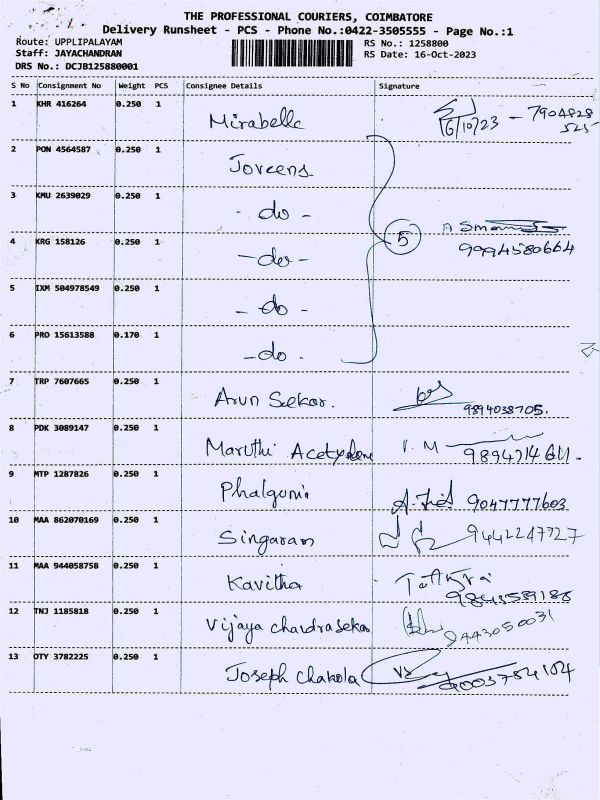 THE PROFESSIONAL COURIERS, COIMBATORE
Delivery Runsheet - PCS - Phone No.:0422-3505555 - Page No.:1
Route: UPPLIPALAYAM RS No.: 1258800
Staff: JAYACHANDRAN RS Date: 16-Oct-2023
DRS No.: DCJB125880001
S No Consignment No Weight PCS Consignee Details Signature
1 KHR 416264 0.250 1 Mirabelle 16/10/23 - 7904828
525
2 PON 4564587 0.250 1 Joveens
3 KMU 2639029 0.250 1 - do -
4 KRG 158126 0.250 1 - do - 5 9994580664
5 IXM 504978549 0.250 1 - do -
6 PRO 15613588 0.170 1 - do -
7 TRP 7607665 0.250 1 Arun Sekar. 9894038705.
8 PDK 3089147 0.250 1 Maruthi Acetylene V. M
9 MTP 1287826 0.250 1 Phalguni 9047777603
10 MAA 862070169 0.250 1 Singaram 9442247727
11 MAA 944058758 0.250 1 Kavitha
12 TNJ 1185818 0.250 1 Vijaya chandrasekar 9443050031
13 OTY 3782225 0.250 1 Joseph Chakola 9003754104